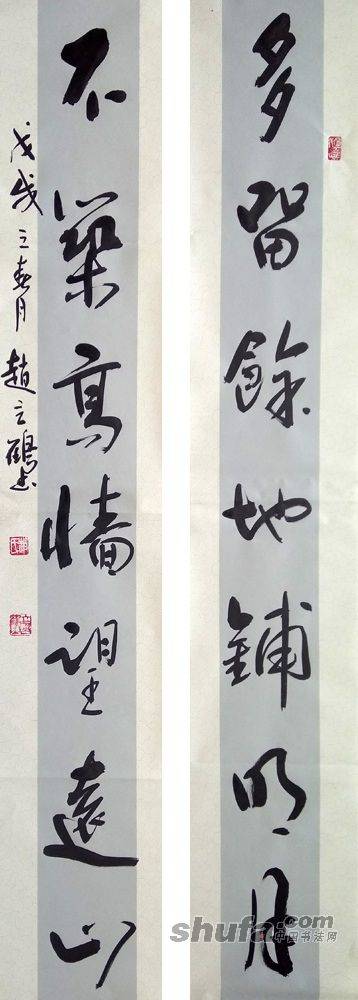 多留餘地鋪明月
不築高墻望遠山
戊戌之春月趙立
shufa.com
中国书法网